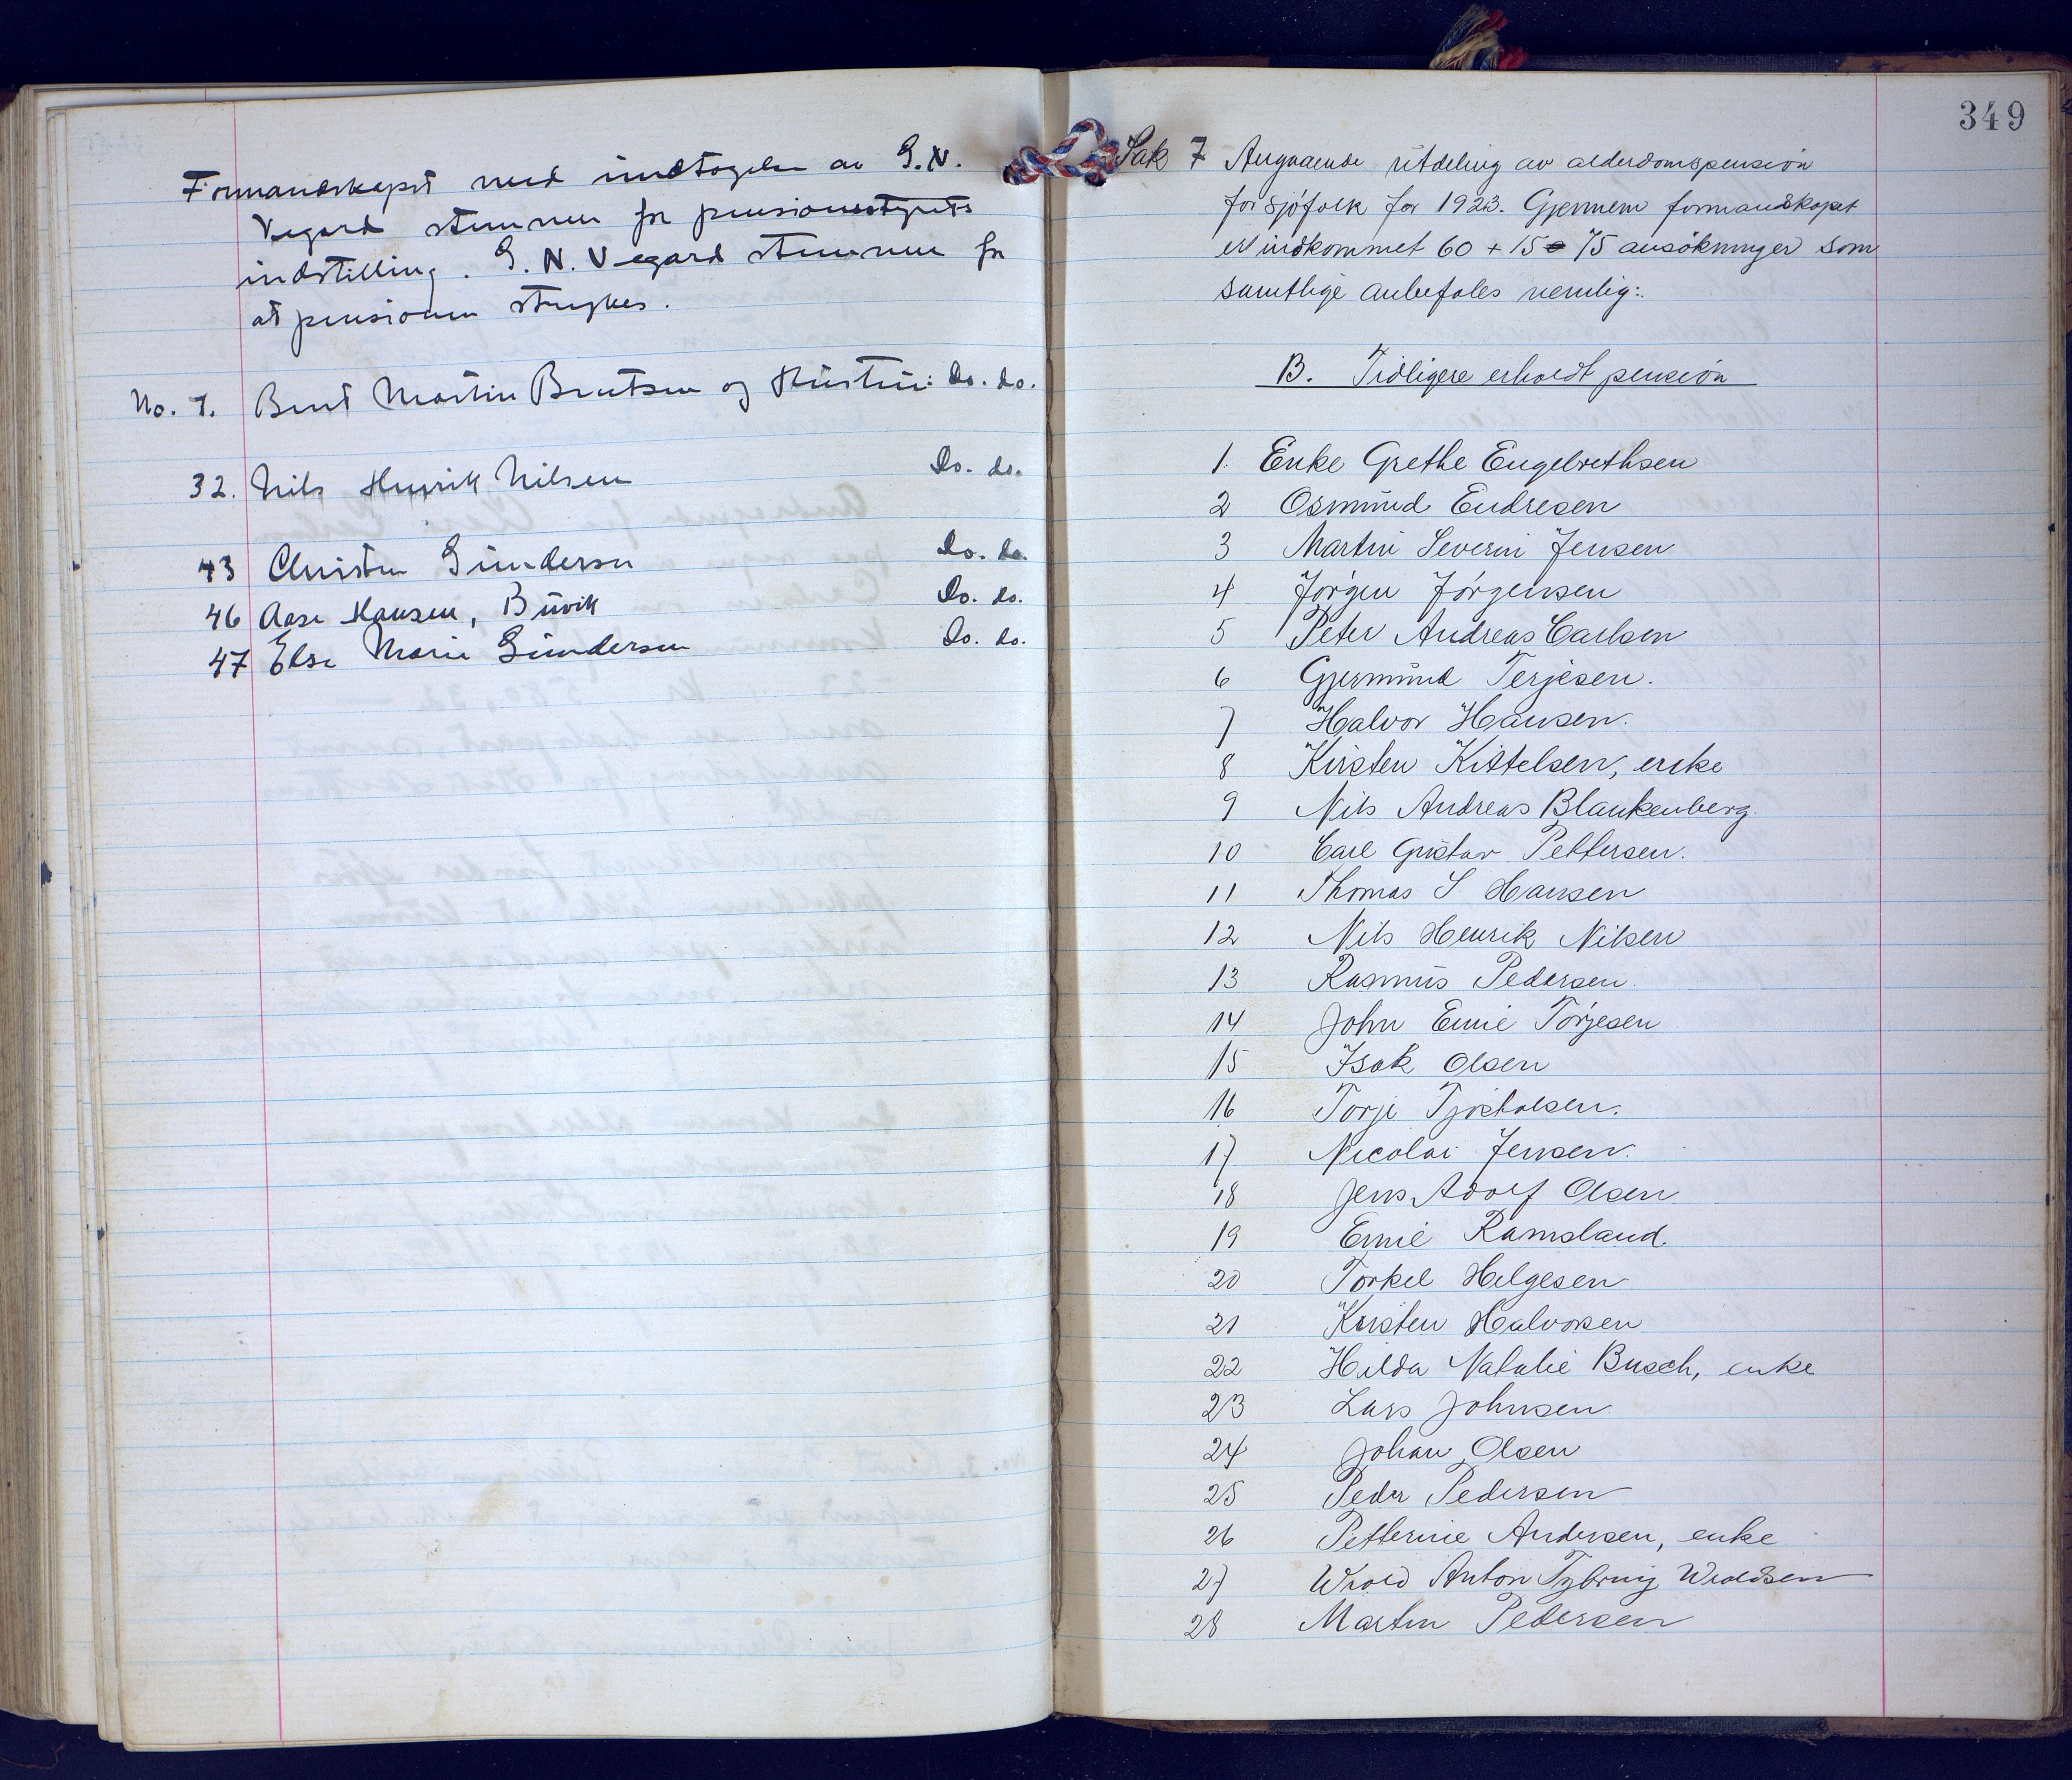 Formandskapet med undtagelse av G. N.
Vegard stemmer for pensionsstyrets
indstilling. G. N. Vegard stemmer for
at pensionen strykes.
No. 7. Bent Martin Bentsen og Hustru: do. do.
32. Nils Henrik Nilsen do. do.
43 Christen Gundersen do. do.
46 Aase Hansen, Buvik do. do.
47 Else Marie Gundersen do. do.
349
Sak 7 Angaaende utdeling av alderdomspension
for sjøfolk for 1923. Gjennem formandskapet
er indkommet 60 + 15 = 75 ansökninger som
samtlige anbefales nemlig:
B. Tidligere erholdt pension
1. Enke Grethe Engelbrethsen
2 Osmund Endresen
3 Martin Severin Jensen
4 Jørgen Jørgensen
5 Peter Andreas Carlsen
6 Gjermund Terjesen.
7 Halvor Hansen.
8 Kirsten Kittelsen, enke
9 Nils Andreas Blankenberg.
10 Carl Gustav Pettersen.
11 Thomas S. Hansen
12 Nils Henrik Nilsen
13 Rasmus Pedersen.
14 John Emil Törjesen
15 Isak Olsen
16 Torje Tjøstolsen.
17 Nicolai Jensen.
18 Jens Adolf Olsen
19 Emil Ramsland.
20 Torkel Helgesen
21 Kirsten Halvorsen
22 Hilda Natalie Busch, enke
23 Lars Johnsen
24 Johan Olsen
25 Peder Pedersen
26 Petterine Andersen, enke
27 Wrold Anton Tybring Wroldsen
28 Martin Pedersen